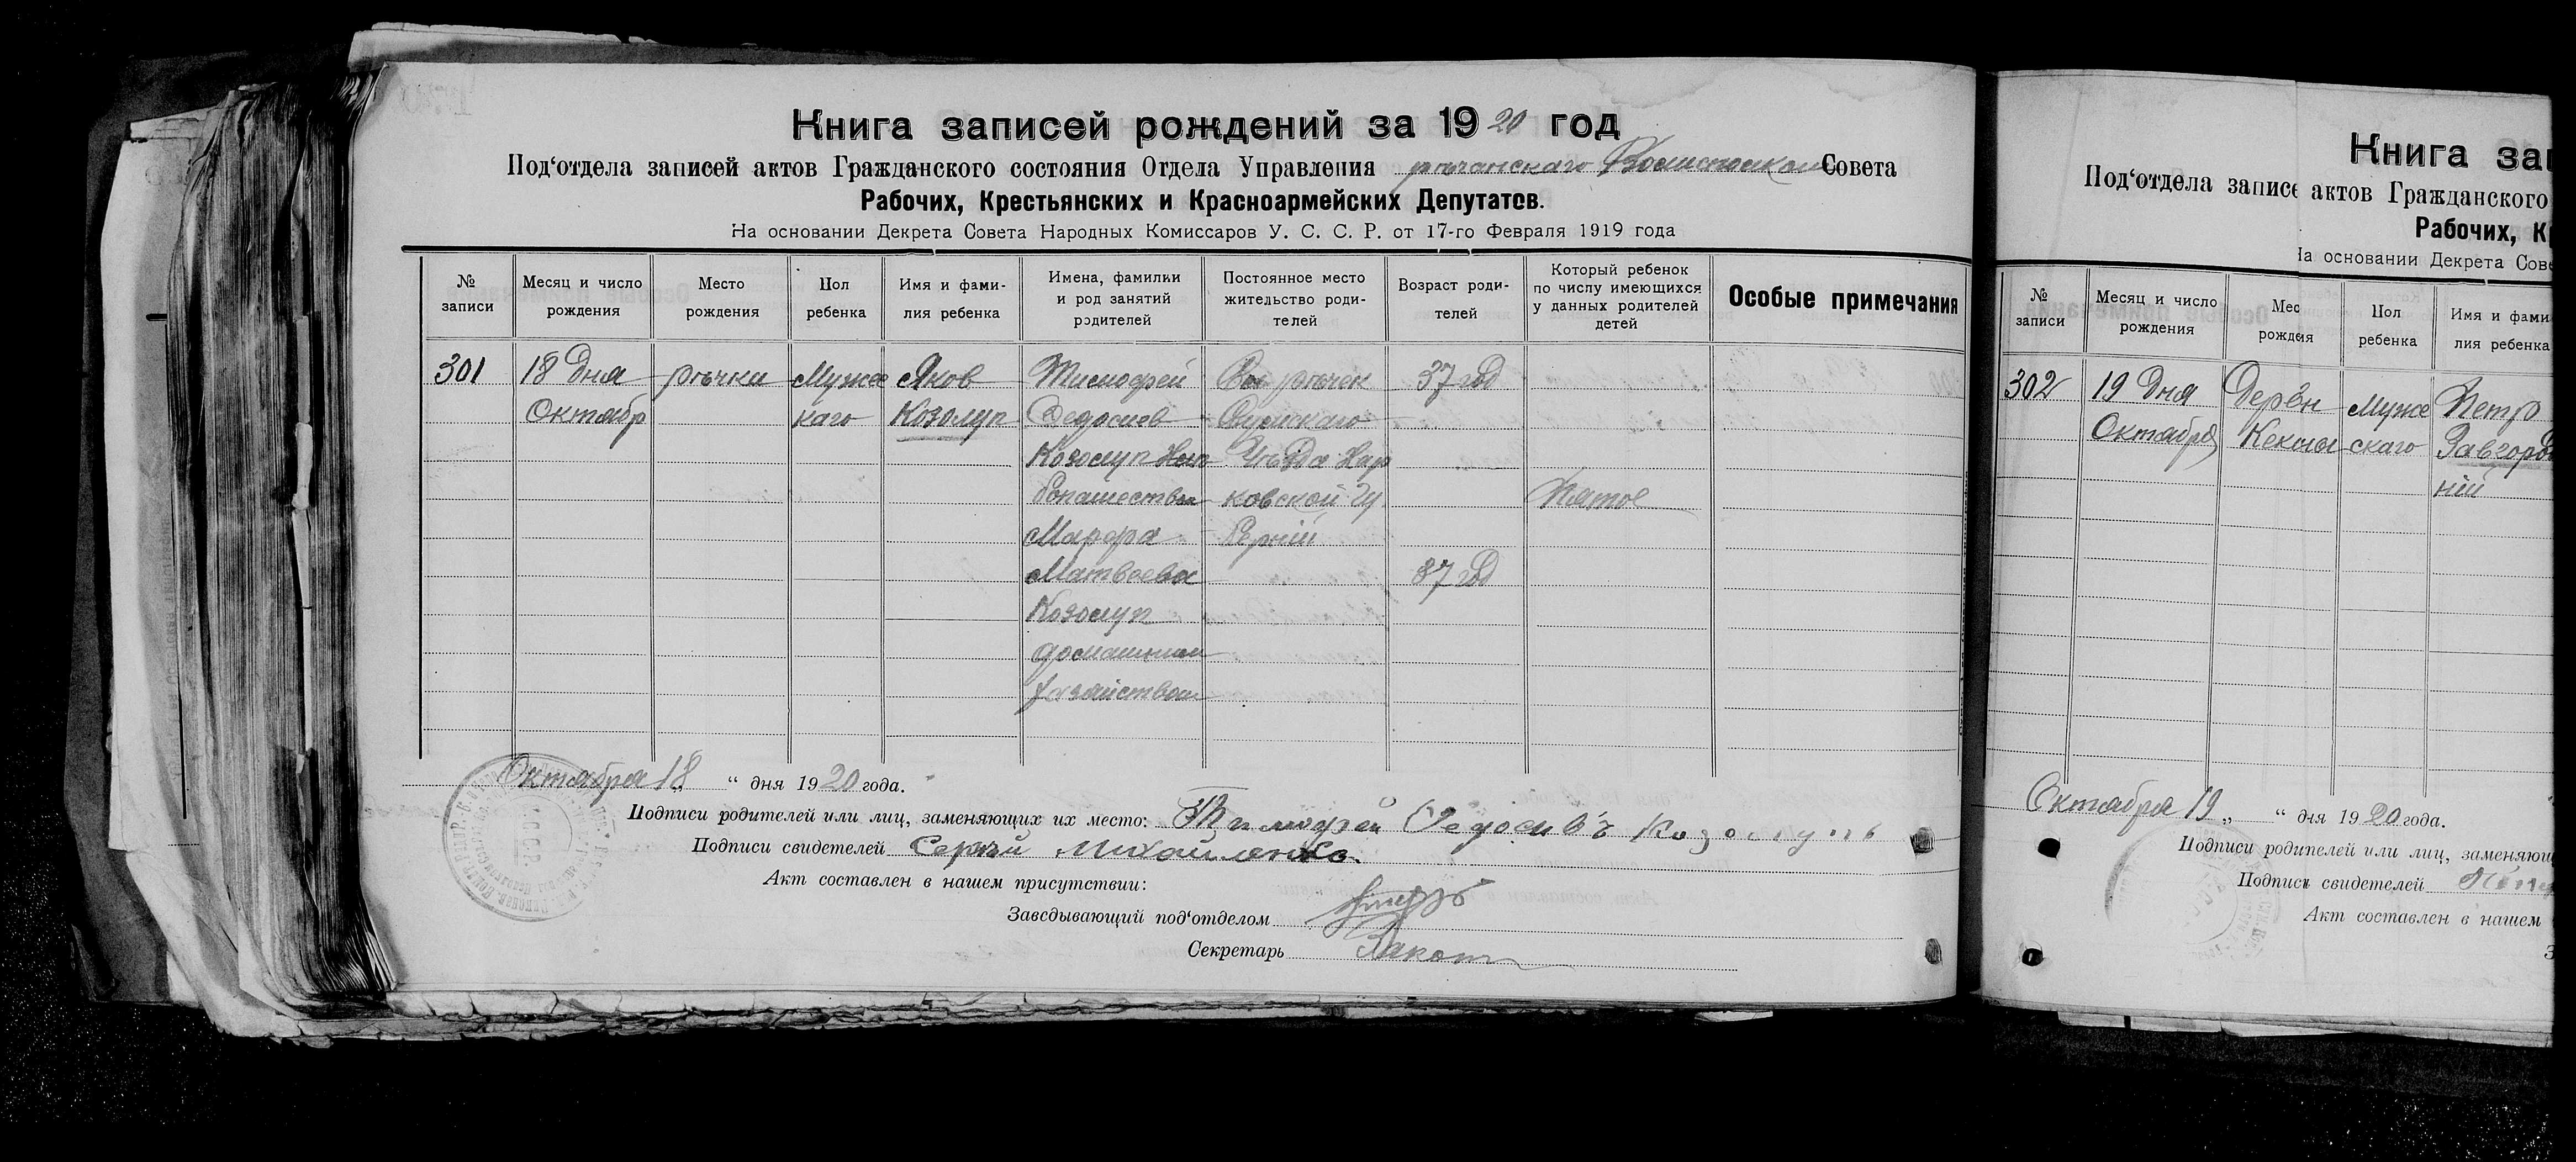 Книга записей рождений за 1920 год
Под‘отдела записей актов Гражданского состояния Отдела Управления рѣчанскаго Совета
Рабочих, Крестьянских и Красноармейских Депутатов.
На основании Декрета Совета Народных Комиссаров У. С. С. Р. от 17-го Февраля 1919 года
№ записи
Месяц и число рождения
Место рождения
Пол ребенка
Имя и фами-
лия ребенка
Имена, фамилии и род занятий родителей
Постоянное место жительство роди-
телей
Возраст роди-
телей
Который ребенок по числу имеющихся у данных родителей детей
Особые примечания
301 18 Дня рѣчки Мужс Яков Тимофей рѣчек 37 год
Октябр каго Козолуп Федосиев Сумскаго
Козолуп Уѣзда Хар
ковской Гу Пятое
Марфа Берній
Матвѣева 37 год
Козолуп
домашним
хазяйством
Октября 18 „ “ дня 1920 года.
Подписи родителей или лиц, заменяющих их место: Тимофей Федосивъ Козолупъ
Подписи свидетелей Сергѣй Михайленко
Акт составлен в нашем присутствии:
Заведывающий под‘отделом
Секретарь
Книга за
Под‘отдела записе актов Гражданского
Рабочих, К
На основании Декрета Сове
№ записи
Месяц и число рождения
Мес
рождения
Пол ребенка
Имя и фами
лия ребенка
302 19 Дня Дерѣн Мужс Петр
Октября скаго Завгород
ній
Октября 19 „ “ дня 1920 года.
Подписи родителей или лиц, заменяющ
Подписи свидетелей
Акт составлен в нашем
З